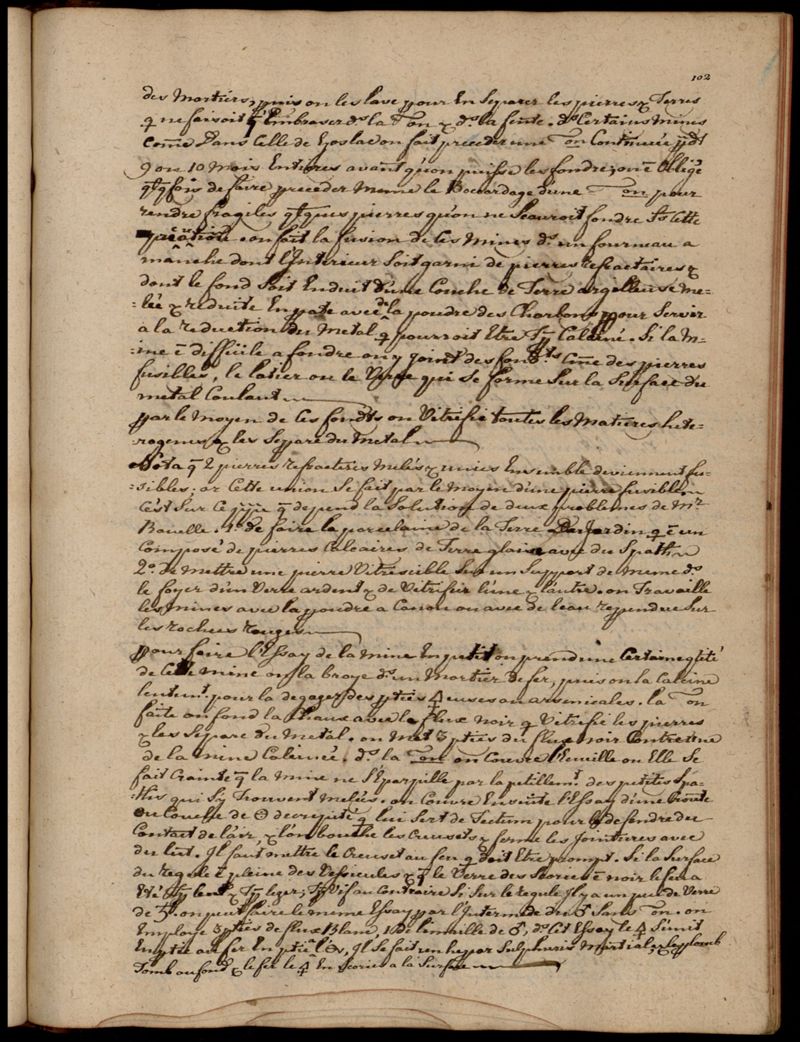 102
des Mortiers, puis on les lave pour En Separer les pierres & Terres
q ne faisoit q Embraser ds la Ton & ds la fonte. ds Certaines Mines
Come Dans Celle de Goslar on fait preceder une Ton Continuée pdt
9 ou 10 Mois Entiers avant qu'on puisse les fondre; on ē Obligé
qlq fois de faire preceder meme le Bocardage d'une Ton pour
rendre fragiles qlques pierres qu'on ne Scauroit fondre Ss Cette
on fait la fusion de Ces Mines ds un fourneau a
manche dont l'Interieur Soit garni de pierres refractaires &
dont le fond Soit Enduit d'une Couche de Terre argilleuse me-
-lée & reduite En pate avec de la poudre des Charbons pour Servir
a la reduction du Metal q pourroit Etre Calciné. Si la M-
-ine ē difficile a fondre on y joint des fondts Come des pierres
fusilles, le latier ou le Verre qui Se forme Sur la Surface du
metal Coulant
par le Moyen de Ces fondts on Vitrifie toutes les Matieres hete-
rogenes & les Separe du Metal
Nota q 2 pierres refracteres Melées & unies Ensemble deviennent fu-
-sibles; or Cette union Se fait par le moyen d'une pierre fusible
C'est Sur Ce ppe q depend la Solution de deux problemes de Mr
Rouelle. 1o De faire la porcelaine de la Terre Du Jardin q ē un
Composé de pierres Calcaires de Terre glaise avec du Spath
2o. De mettre une pierre Vitrescible Sur un Support de meme ds
le foyer d'un Verre ardent & de Vitrifier l'une & l'autre. on Travaille
les mines avec la poudre a Canon ou avec de l'eau rependue Sur
les rochers rouges
pour faire l'Essay de la mine En petit on prend une Certaine qtité
de Cette mine on la broye ds un Mortier de fer, puis on la Calcine
lentemt pour la degager des pties 🜍euses ou arsenicales. la Ton
faite on fond la Chaux avec le flux noir q Vitrifie les pierres
& les Separe du Metal. on Met 3 pties du flux noir Contre une
de la mine Calcinée. ds la Ton on Couvre l'Ecuille ou Elle Se
fait Crainte q la Mine ne S'Eparpille par le petillemt des petites Spa-
-ths qui S'y Trouvent melées. on Couvre Ensuite l'Essay d'une Croute
ou Couche de 🜔 decrepité q lui Sert de Tectum pour le defendre du
Contact de l'air, & l'on bouche les Creusets & ferme les Jointures avec
du lut. Il faut mettre le Creuset au feu q doit Etre prompt. Si la Surface
du regule ē pleine des Vesicules & q le Verre des Scories ē noir le feu a
Eté Trop lent & Trop leger; Trop Vif au Contraire Si Sur le regule Il y a un peu de Verre
de ♄. on peut faire le meme Essay par l'Intermede du ♂ Sans Ton. on
Employe 3 pties de flux Blanc, de limaille de ♂, ds Cet Essay le 🜍 S'unit
En ptie au fer En ptie Il Se fait un hepar Sulphuris Martial, & le plomb
Tombe au fond & le fer & le 🜍 En Scories a la Surface